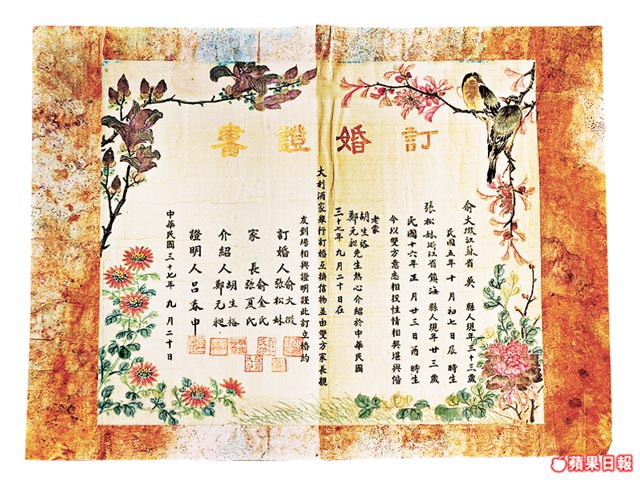 訂婚證書
俞大㵟江蘇省吳縣人現年三十三歲
民國五年十月初七日辰時生
張松妹浙江省鎮海縣人現年廿三歲
民國十六年正月廿三日酉時生
今以雙方意志相投性情相契堪與偕
老蒙
胡生裕
鄭元昶先生熱心介紹於中華民國
三十七年九月二十日在
大利酒家舉行訂婚互換信物並由雙方家長親
友到場相與證明謹此訂立婚約
訂婚人俞大
張松妹
家長俞金氏
張夏氏
介紹人胡生裕
鄭元昶
證明人呂春申
中華民國三十七年九月二十日
蘋果日報